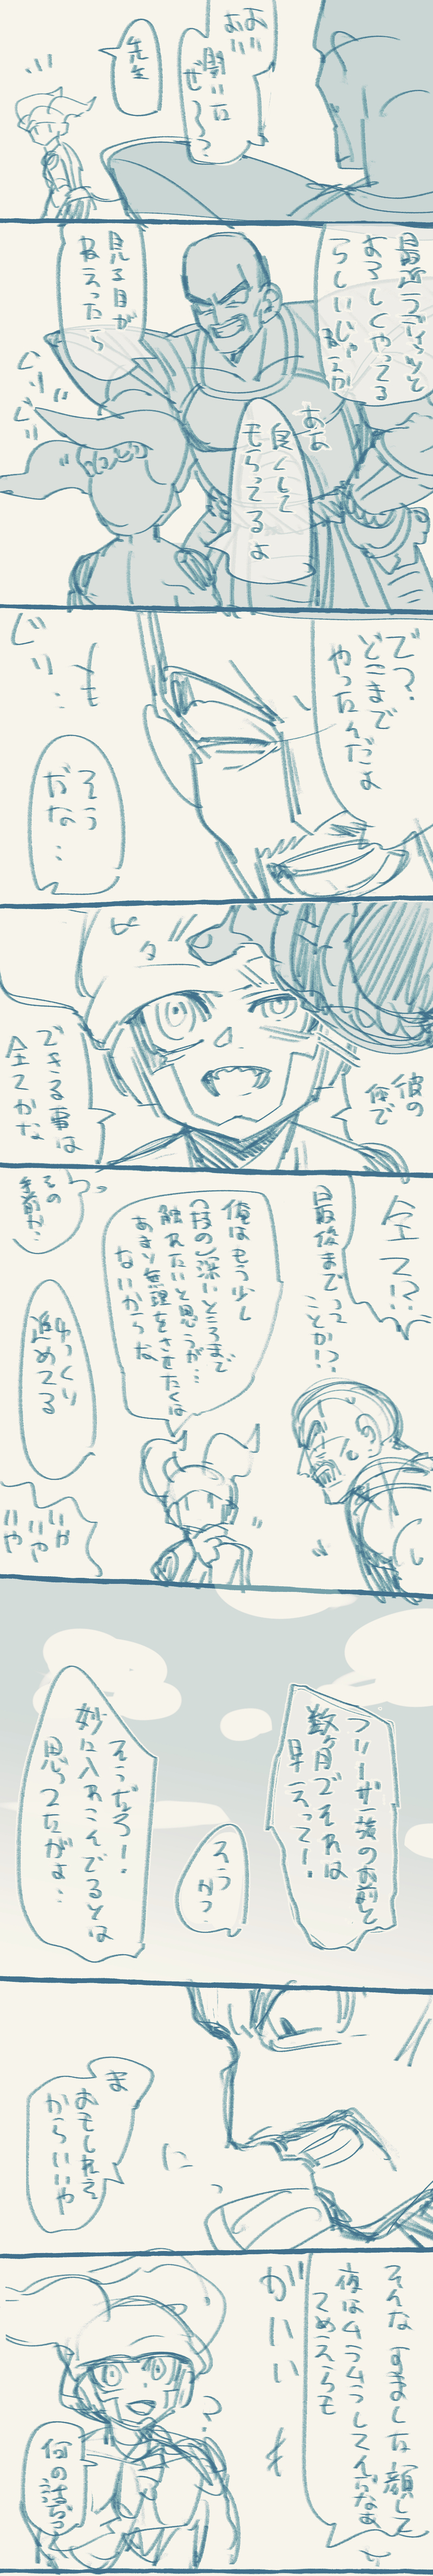 おおい
聞いた
ぜ〜?
先生
最近ラディッツと
よろしくやってる
らしいじゃ
ねえか
見る目が
ねえったら
ぐり
ぐり
ああ
良くして
もらってるよ
で?
どこまで
やったんだよ
ぐり…
そう
だな…
ピタ
彼の
前で
できる事は
全てかな
全て!?
最後までって
ことか!?
俺はもう少し
(技の)深いところまで
触れたいと思うが…
あまり無理をさせたくは
ないからな
その
手前か…
ゆっくり
進めてる
いや
いや
いや
フリーザ一族のお前と
数ヶ月でそれは
早えって!
そうか?
そうだろー
妙に入れこんでるとは
思ってたがよ…
ま
おもしれえ
からいいや
に
そんなすました顔して
夜はムラムラしてんだなあ
てめえらも
がいい
?
何の話だ?